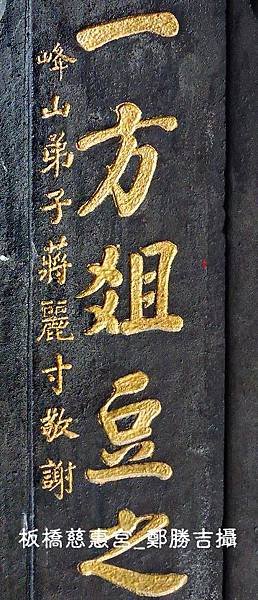 一方俎豆之
峰山弟子蔣麗寸敬謝
板橋慈惠宮_鄭勝吉攝